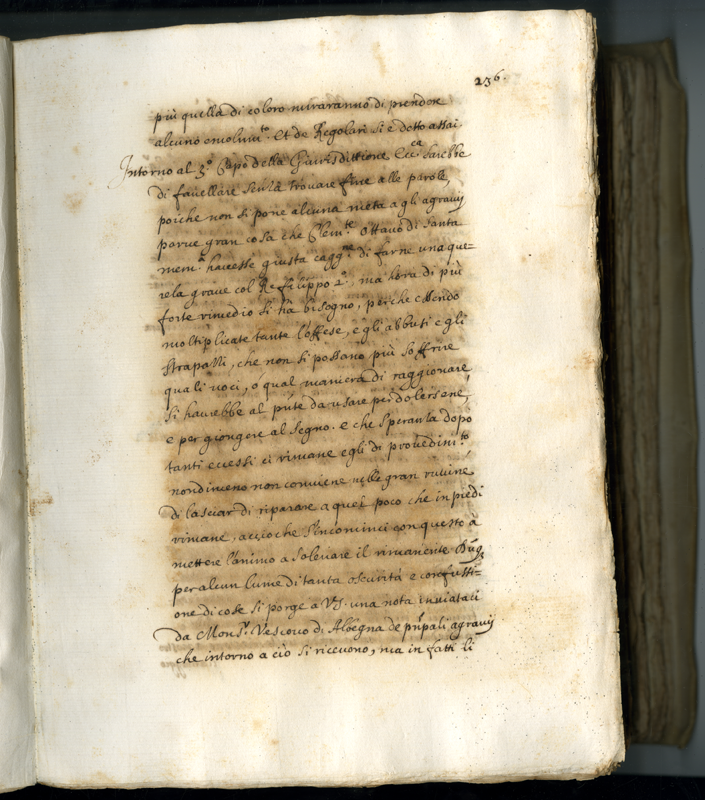 236.
più quella di coloro miraranno di prendere
alcuno emolum.to. Et de Regolari si è detto assai
Intorno al 3.o Capo della Giurisdittione Ecc.ca sarebbe
di favellare senza trovare fine alle parole,
poiche non si pone alcuna meta a gli agravij
parve gran cosa che Clem.te Ottavo di santa
mem.a havesse giusta cagg.ne di farne una que=
rela grave col Re filippo 2.o, ma hora di più
forte rimedio si ha bisogno, perche essendo
moltiplicate tante l'offese, e gli abbusi e gli
strapazzi, che non si possano più soffrire
quali voci, o qual maniera di raggionare
si havrebbe al pñte da usare per dolersene,
e per giongere al segno. e che speranza dopo
tanti eccessi ci rimane egli di provedim.to,
nondimeno non conviene nelle gran ruvine
di lasciar di riparare a quel poco che in piedi
rimane, acciò che s'incominci con questo a
mettere l'animo a solevare il rimanente
per alcun lume di tanta oscurità e confussi=
one di cose si porge a VS. una nota inviataci
da Mons.r Vescovo di Albegna de pñpali agravij
che intorno a ciò si ricevono, ma in fatti li